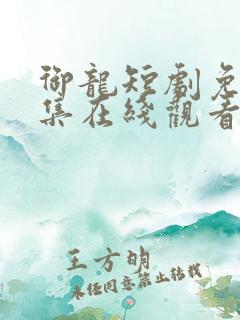 御龍短劇免
集在綫觀看
王方明
未经同意禁止转载